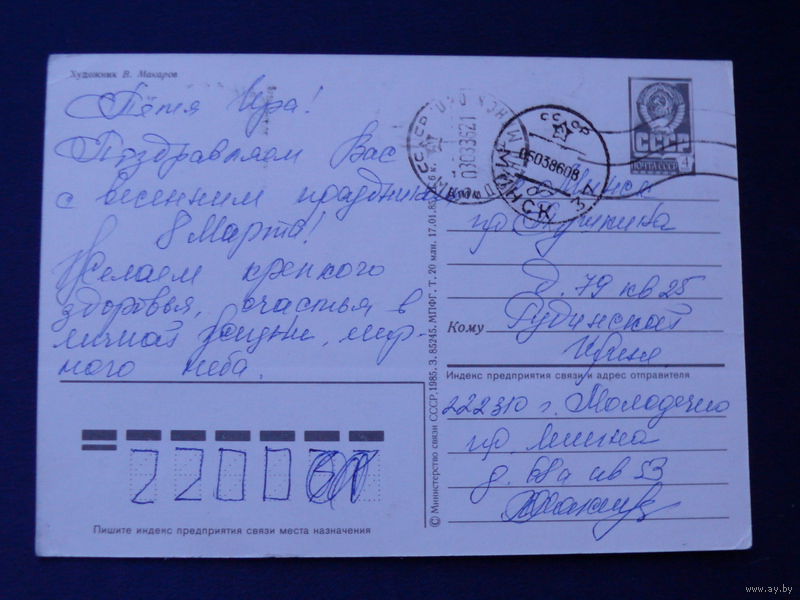 Художник В. Макаров
Тётя Ира!
Поздравляем Вас
с весенним праздником
8 Марта!
Желаем крепкого
здоровья, счастья в
личной жизни, мир-
ного неба.
220
Пишите индекс предприятия связи места назначения
© Министерство связи СССР, 1985. З. 85245. МПФГ. Т. 20 млн. 17.01.85
СССР
МИНСК
0303862
СССР
05038608
МИНСК
СССР
ПОЧТА СССР
4к
г. Минск
пр. Пушкина
д. 79 кв 25
Кому Рудинской
Ирине
Индекс предприятия связи и адрес отправителя
222310 г. Молодечно
пр. Ленина
д. 68а кв 53
www.ay.by